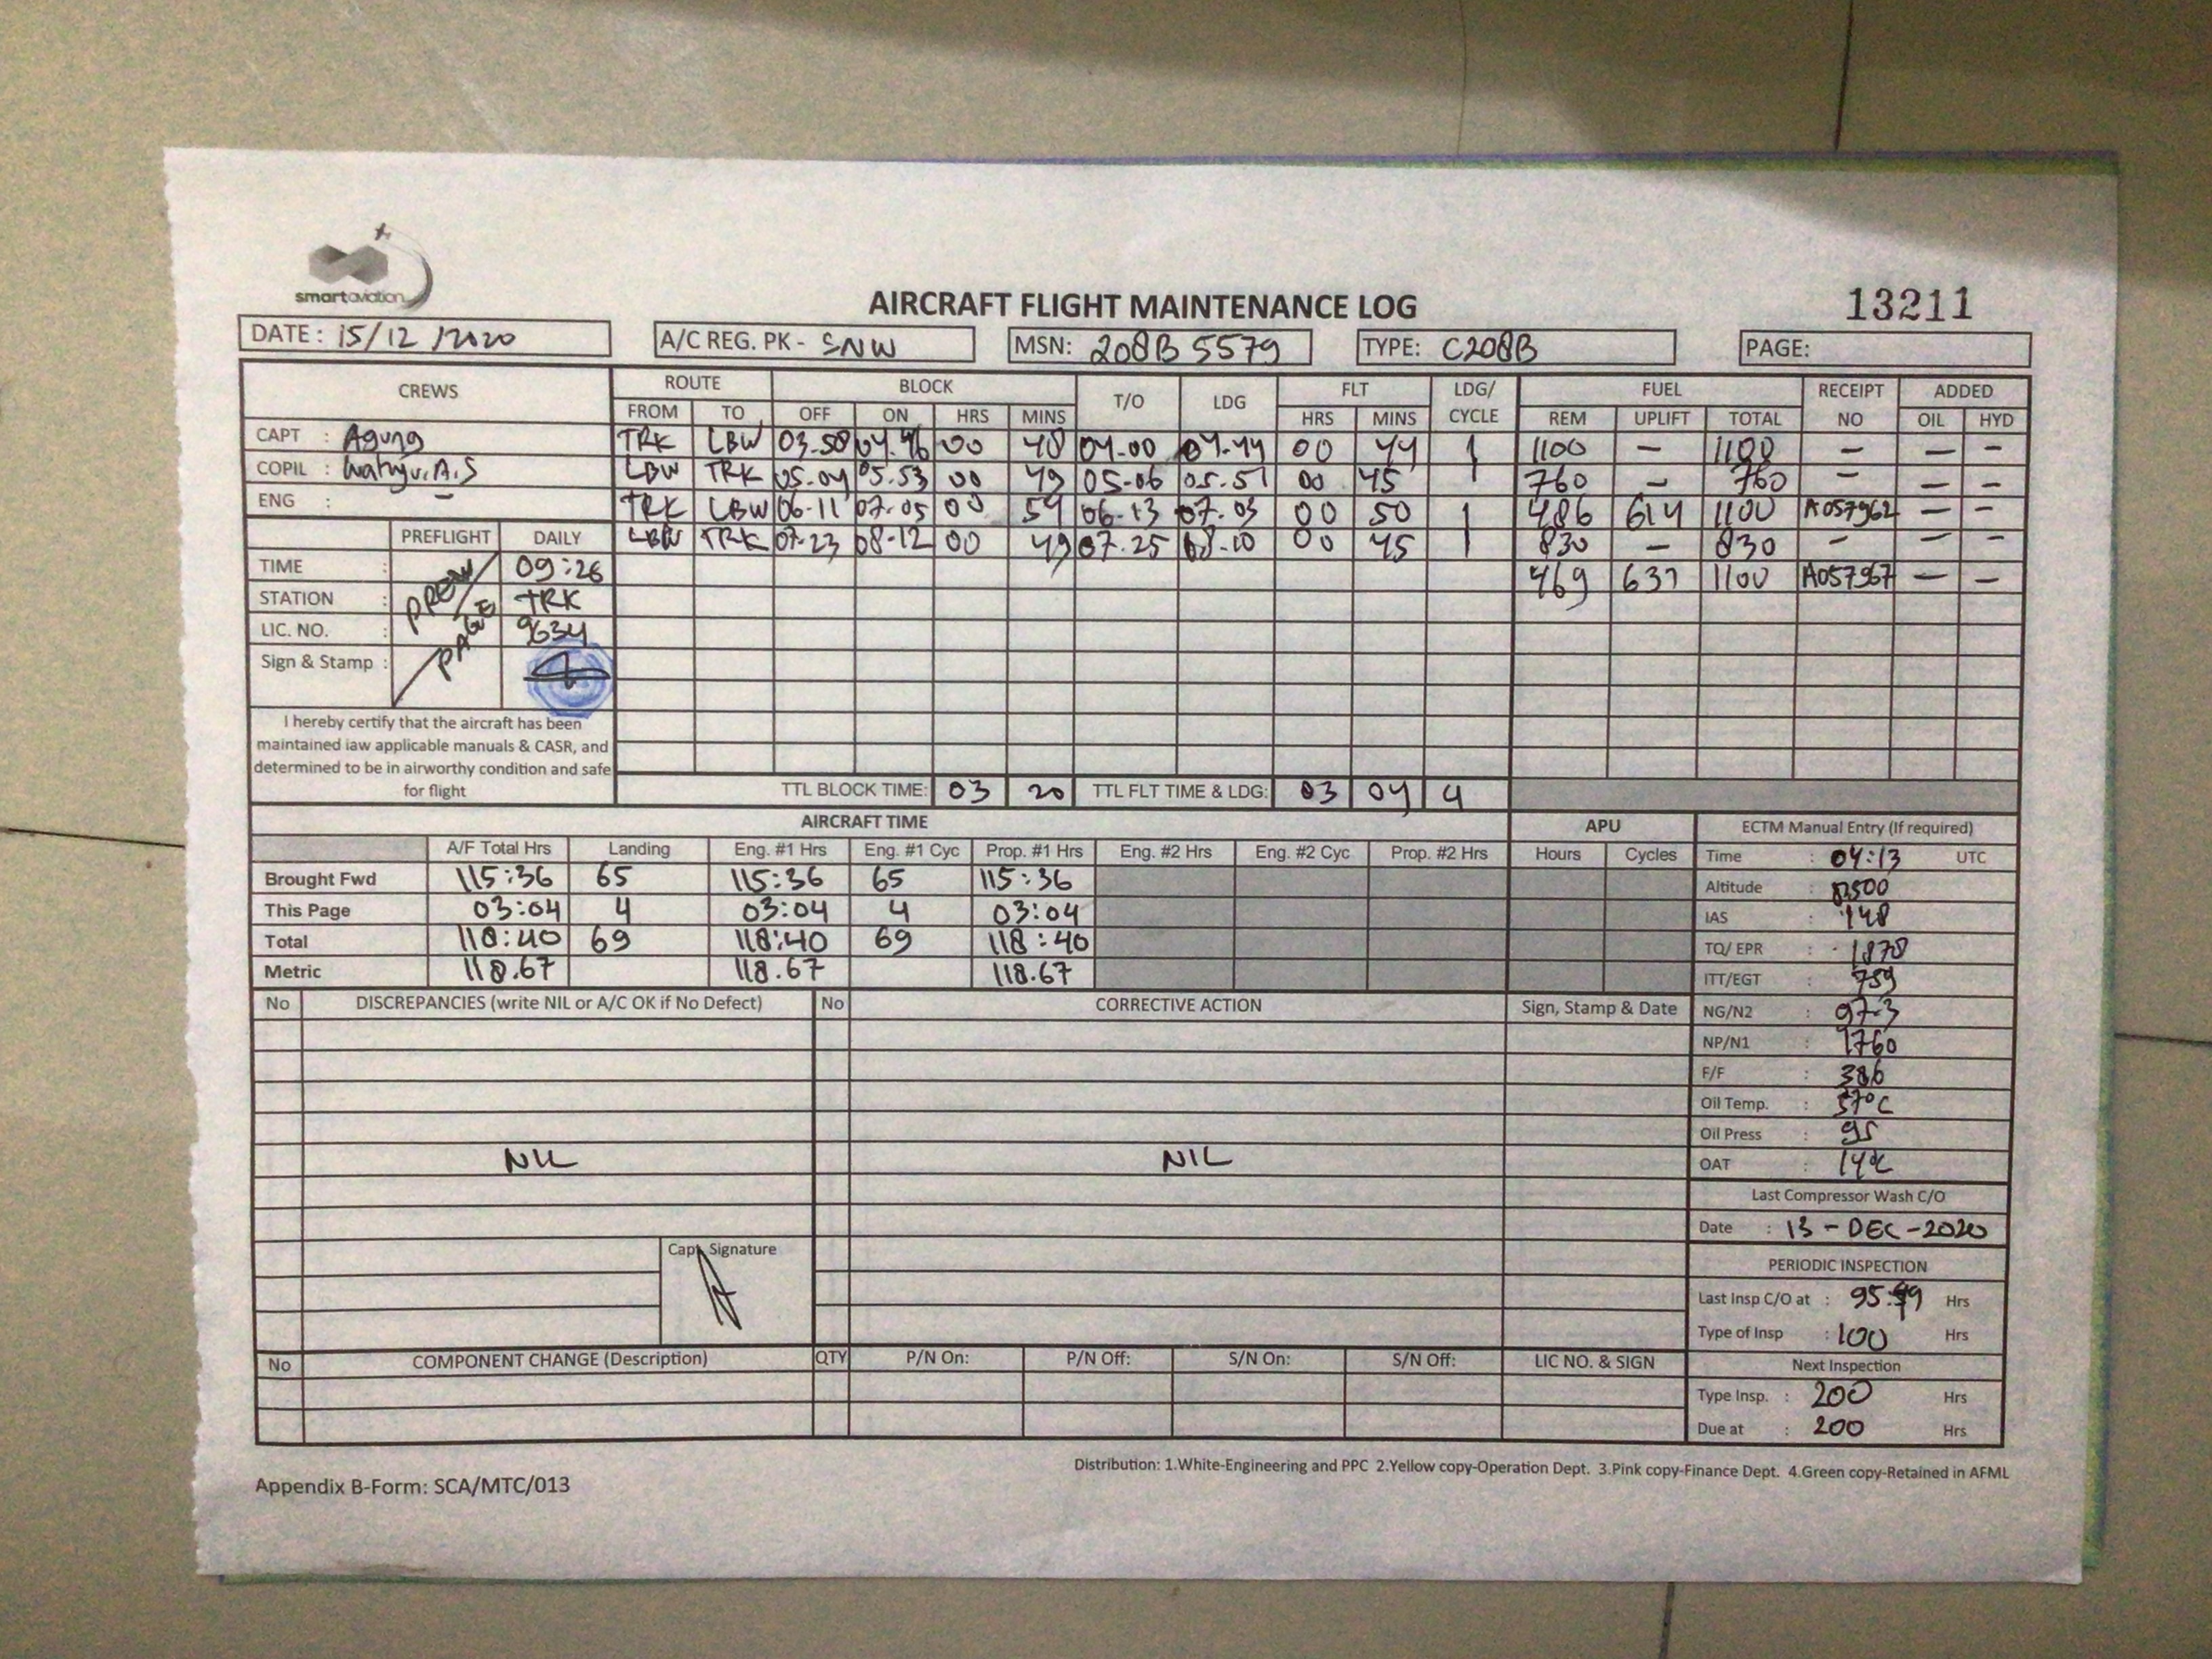 smartaviation
AIRCRAFT FLIGHT MAINTENANCE LOG
13211
DATE : 15/12/2020
A/C REG. PK - SNW
MSN: 208B 5579
TYPE: C208B
PAGE:
CREWS ROUTE BLOCK T/O LDG FLT LDG/ CYCLE FUEL RECEIPT NO ADDED
FROM TO OFF ON HRS MINS HRS MINS REM UPLIFT TOTAL OIL HYD
CAPT : Agung
TRK LBW 03.58 04.46 00 48 04.00 04.44 00 44 1 1100 — 1100 — — —
COPIL : Wahyu.A.S
LBW TRK 05.04 05.53 00 49 05.06 05.51 00 45 760 — 760 — — —
ENG : —
TRK LBW 06.11 07.05 00 54 06.13 07.03 00 50 1 486 614 1100 A057962 — —
LBW TRK 07.23 08.12 00 49 07.25 08.10 00 45 1 830 — 830 — — —
469 631 1100 A057967 — —
PREFLIGHT DAILY
TIME : 09:26
STATION : TRK
LIC. NO. : 9634
Sign & Stamp :
PREV PAGE
I hereby certify that the aircraft has been
maintained iaw applicable manuals & CASR, and
determined to be in airworthy condition and safe
for flight
TTL BLOCK TIME: 03 20 TTL FLT TIME & LDG: 03 04 4
AIRCRAFT TIME
APU
A/F Total Hrs Landing Eng. #1 Hrs Eng. #1 Cyc Prop. #1 Hrs Eng. #2 Hrs Eng. #2 Cyc Prop. #2 Hrs Hours Cycles
Brought Fwd 115:36 65 115:36 65 115:36
This Page 03:04 4 03:04 4 03:04
Total 118:40 69 118:40 69 118:40
Metric 118.67 118.67 118.67
ECTM Manual Entry (If required)
Time : 04:13 UTC
Altitude :
IAS : 148
TQ/ EPR : 1870
ITT/EGT : 759
NG/N2 : 97.3
NP/N1 : 1760
F/F : 386
Oil Temp. : 57°C
Oil Press : 95
OAT : 14°C
Last Compressor Wash C/O
Date : 13 - DEC - 2020
PERIODIC INSPECTION
Last Insp C/O at : Hrs
Type of Insp : 100 Hrs
Next Inspection
Type Insp. : 200 Hrs
Due at : 200 Hrs
No DISCREPANCIES (write NIL or A/C OK if No Defect) No CORRECTIVE ACTION Sign, Stamp & Date
NIL NIL
Capt. Signature
No COMPONENT CHANGE (Description) QTY P/N On: P/N Off: S/N On: S/N Off: LIC NO. & SIGN
Distribution: 1.White-Engineering and PPC 2.Yellow copy-Operation Dept. 3.Pink copy-Finance Dept. 4.Green copy-Retained in AFML
Appendix B-Form: SCA/MTC/013